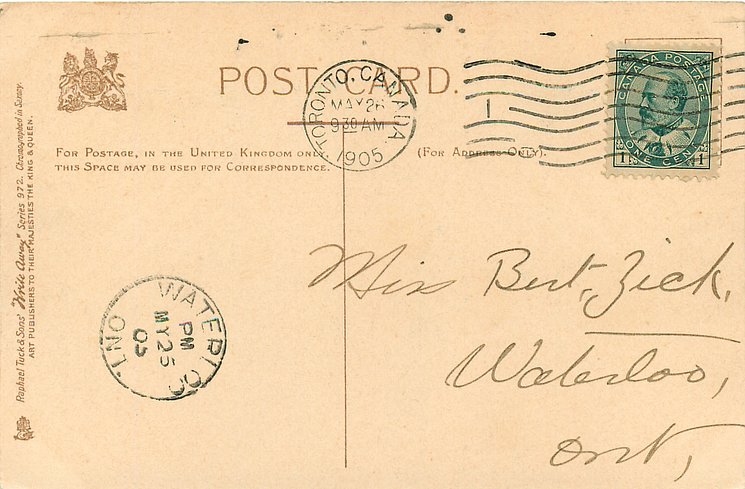 POST CARD.
TORONTO, CANADA.
MAY 26
9 30 AM
1905
1
CANADA POSTAGE
1 ONE CENT 1
FOR POSTAGE, IN THE UNITED KINGDOM ONLY,
THIS SPACE MAY BE USED FOR CORRESPONDENCE.
(FOR ADDRESS ONLY).
Raphael Tuck & Sons' "Write Away" Series 972. Chromographed in Saxony.
ART PUBLISHERS TO THEIR MAJESTIES THE KING & QUEEN.
WATERLOO
PM
MY 25
05
ONT.
Miss Bert. Zick,
Waterloo,
Ont,